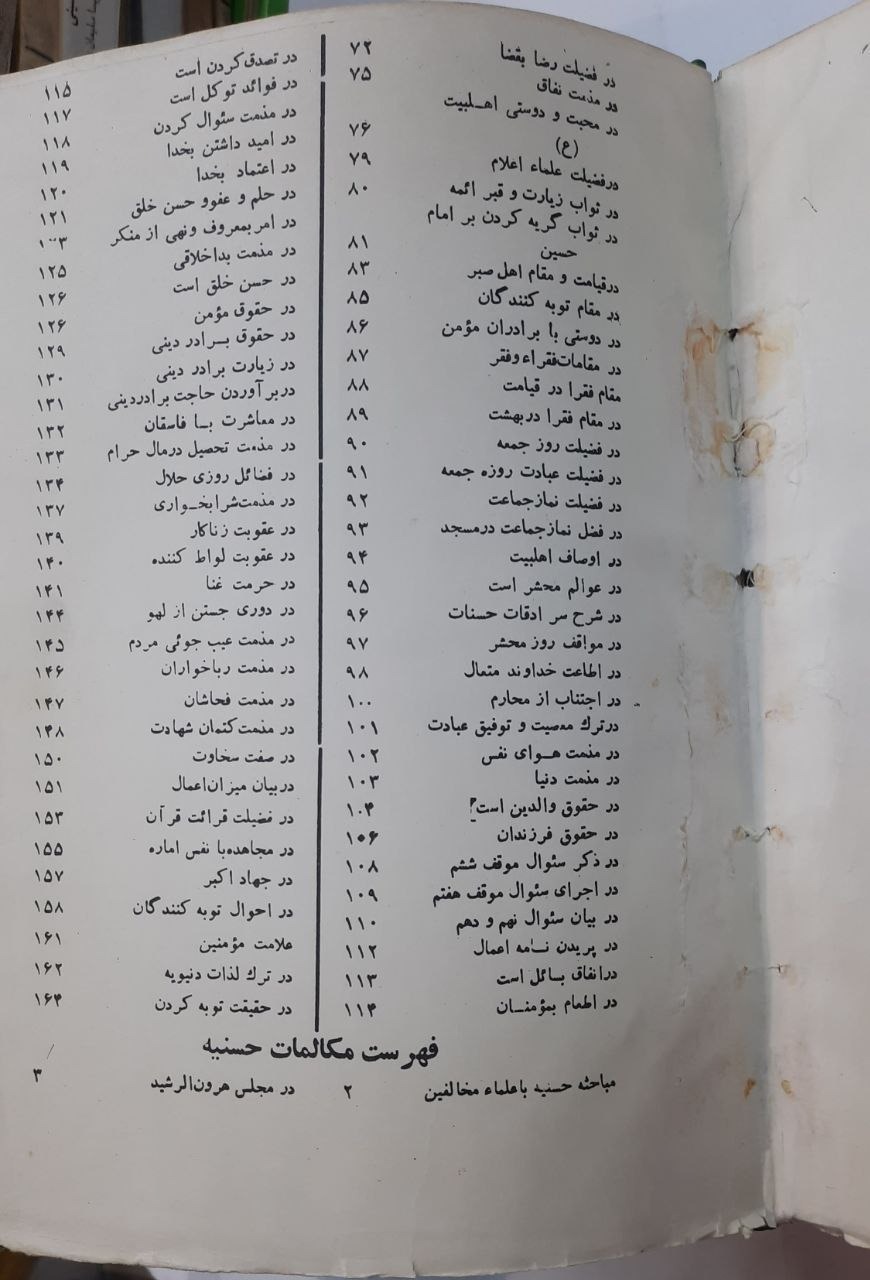 در فضیلت رضا بقضا ۷۲
در مذمت نفاق ۷۵
در محبت و دوستی اهـلبیت
(ع) ۷۶
درفضیلت علماء اعلام ۷۹
در ثواب زیارت و قبر ائمه ۸۰
در ثواب گریه کردن بر امام
حسین ۸۱
درقیامت و مقام اهل صبر ۸۳
در مقام توبه کنندگان ۸۵
در دوستی با برادران مؤمن ۸۶
در مقامات فقراء وفقر ۸۷
مقام فقرا در قیامت ۸۸
در مقام فقرا دربهشت ۸۹
در فضیلت روز جمعه ۹۰
در فضیلت عبادت روزه جمعه ۹۱
در فضیلت نمازجماعت ۹۲
در فضل نمازجماعت درمسجد ۹۳
در اوصاف اهلبیت ۹۴
در عوالم محشر است ۹۵
در شرح سر ادقات حسنات ۹۶
در مواقف روز محشر ۹۷
در اطاعت خداوند متعال ۹۸
در اجتناب از محارم ۱۰۰
درترك معصیت و توفیق عبادت ۱۰۱
در مذمت هـوای نفس ۱۰۲
در مذمت دنیا ۱۰۳
در حقوق والدین است؟ ۱۰۴
در حقوق فرزندان ۱۰۶
در ذکر سئوال موقف ششم ۱۰۸
در اجرای سئوال موقف هفتم ۱۰۹
در بیان سئوال نهم و دهم ۱۱۰
در پریدن نـامه اعمال ۱۱۲
درانفاق بسائل است ۱۱۳
در اطعام بمؤمنـان ۱۱۴
در تصدق کردن است ۱۱۵
در فوائد توکل است ۱۱۷
در مذمت سئوال کردن ۱۱۸
در امید داشتن بخدا ۱۱۹
در اعتماد بخدا ۱۲۰
در حلم و عفوو حسن خلق ۱۲۱
در امربمعروف ونهی از منکر ۱۲۳
در مذمت بداخلاقی ۱۲۵
در حسن خلق است ۱۲۶
در حقوق مؤمن ۱۲۶
در حقوق بـرادر دینی ۱۲۹
در زیارت برادر دینی ۱۳۰
دربرآوردن حاجت برادردینی ۱۳۱
در معاشرت بـا فاسقان ۱۳۲
در مذمت تحصیل درمال حرام ۱۳۳
در فضائل روزی حلال ۱۳۴
در مذمت‌شرابخـواری ۱۳۷
در عقوبت زناکار ۱۳۹
در عقوبت لواط کننده ۱۴۰
در حرمت غنا ۱۴۱
در دوری جستن از لهو ۱۴۴
در مذمت عیب جوئی مردم ۱۴۵
در مذمت رباخواران ۱۴۶
در مذمت فحاشان ۱۴۷
در مذمت‌کتمان شهادت ۱۴۸
در صفت سخاوت ۱۵۰
دربیان میزان‌اعمال ۱۵۱
در فضیلت قرائت قرآن ۱۵۳
در مجاهده‌با نفس اماره ۱۵۵
در جهاد اکبر ۱۵۷
در احوال توبه کنندگان ۱۵۸
علامت مؤمنین ۱۶۱
در ترك لذات دنیویه ۱۶۲
در حقیقت توبه کردن ۱۶۴
فهرست مکالمات حسنیه
مباحثه حسنیه باعلماء مخالفین ۲
در مجلس هرون‌الرشید ۳